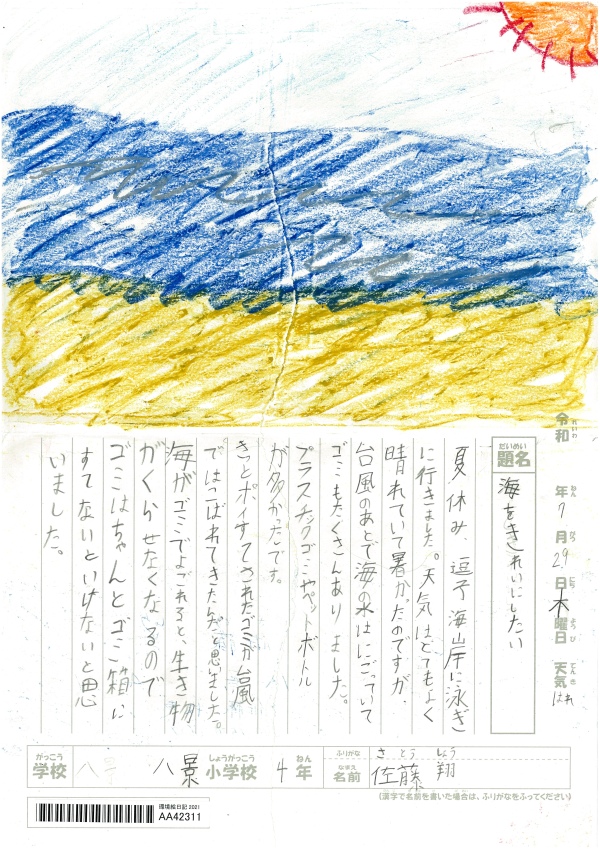 令和 年 7月 29日 木曜日 天気 はれ
れいわ ねん がつ にち ようび てんき
だいめい
題名 海をきれいにしたい
夏休み、逗子海岸に泳ぎ
に行きました。天気はとてもよく
晴れていて暑かったのですが、
台風のあとで海の水はにごっていて
ゴミもたくさんありました。
プラスチックゴミやペットボトル
が多かったです。
きっとポイすてされたゴミが台風
ではこばれてきたんだと思いました。
海がゴミでよごれると、生き物
がくらせなくなるので
ゴミはちゃんとゴミ箱に
すてないといけないと思
いました。
がっこう しょうがっこう ねん
学校 八景 小学校 4年
ふりがな さとう しょう
なまえ
名前 佐藤 翔
(漢字で名前を書いた場合は、ふりがなをふってください)
環境絵日記 2021
AA42311